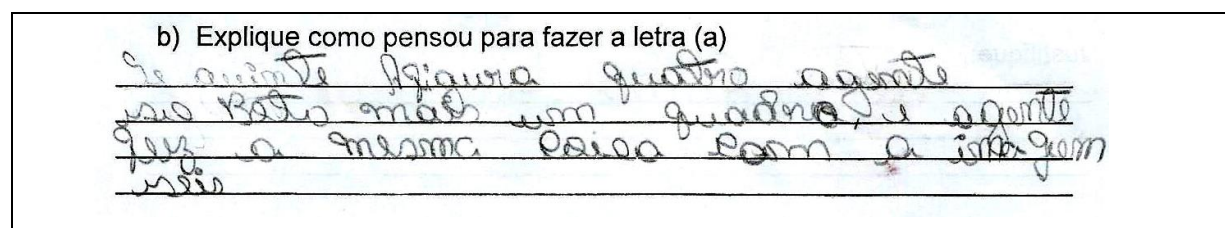 b) Explique como pensou para fazer a letra (a)
figura quatro agente
mais um quadro, e agente
fez a mesma coisa com a imagem
seis